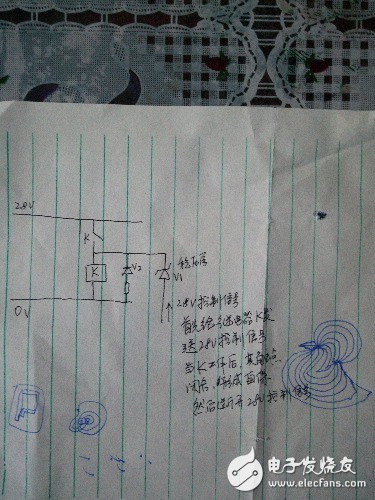 28V
K
K
V2
V1
0V
28V控制信号
首先给继电器K发
送28V控制信号
当K工作后,其触点
闭合,形成自保
然后断开28V控制信号
电子发烧友
www.elecfans.com